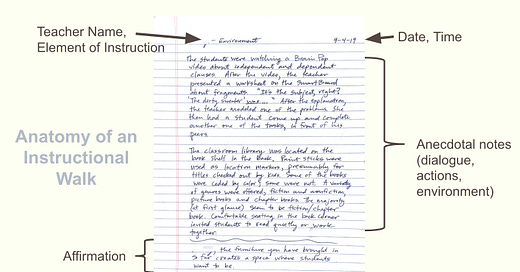 Teacher Name,
Element of Instruction
- Environment
9-4-19
Date, Time
The students were watching a Brain Pop
video about independent and dependent
clauses. After the video, the teacher
presented a worksheet on the SmartBoard
about fragments. "It's the subject, right?
The dirty sweater was..." After the explanation,
the teacher modeled one of the problems. She
then had a student come up and complete
another one of the tasks, in front of his
peers.
Anatomy of an
Instructional
Walk
The classroom library was located on the
book shelf in the back. Paint sticks were
used as location markers, presumably for
titles checked out by kids. Some of the books
were coded by color; some were not. A variety
of genres were offered, fiction and nonfiction,
picture books and chapter books. The majority
(at first glance) seem to be fiction/chapter
book. Comfortable seating in the book corner
invited students to read quietly or work
together.
Anecdotal notes
(dialogue,
actions,
environment)
Affirmation
the furniture you have brought in
so far creates a space where students
want to be.